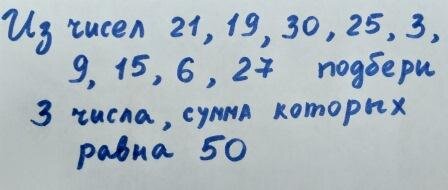 Из чисел 21, 19, 30, 25, 3,
9, 15, 6, 27 подбери
3 числа, сумма которых
равна 50